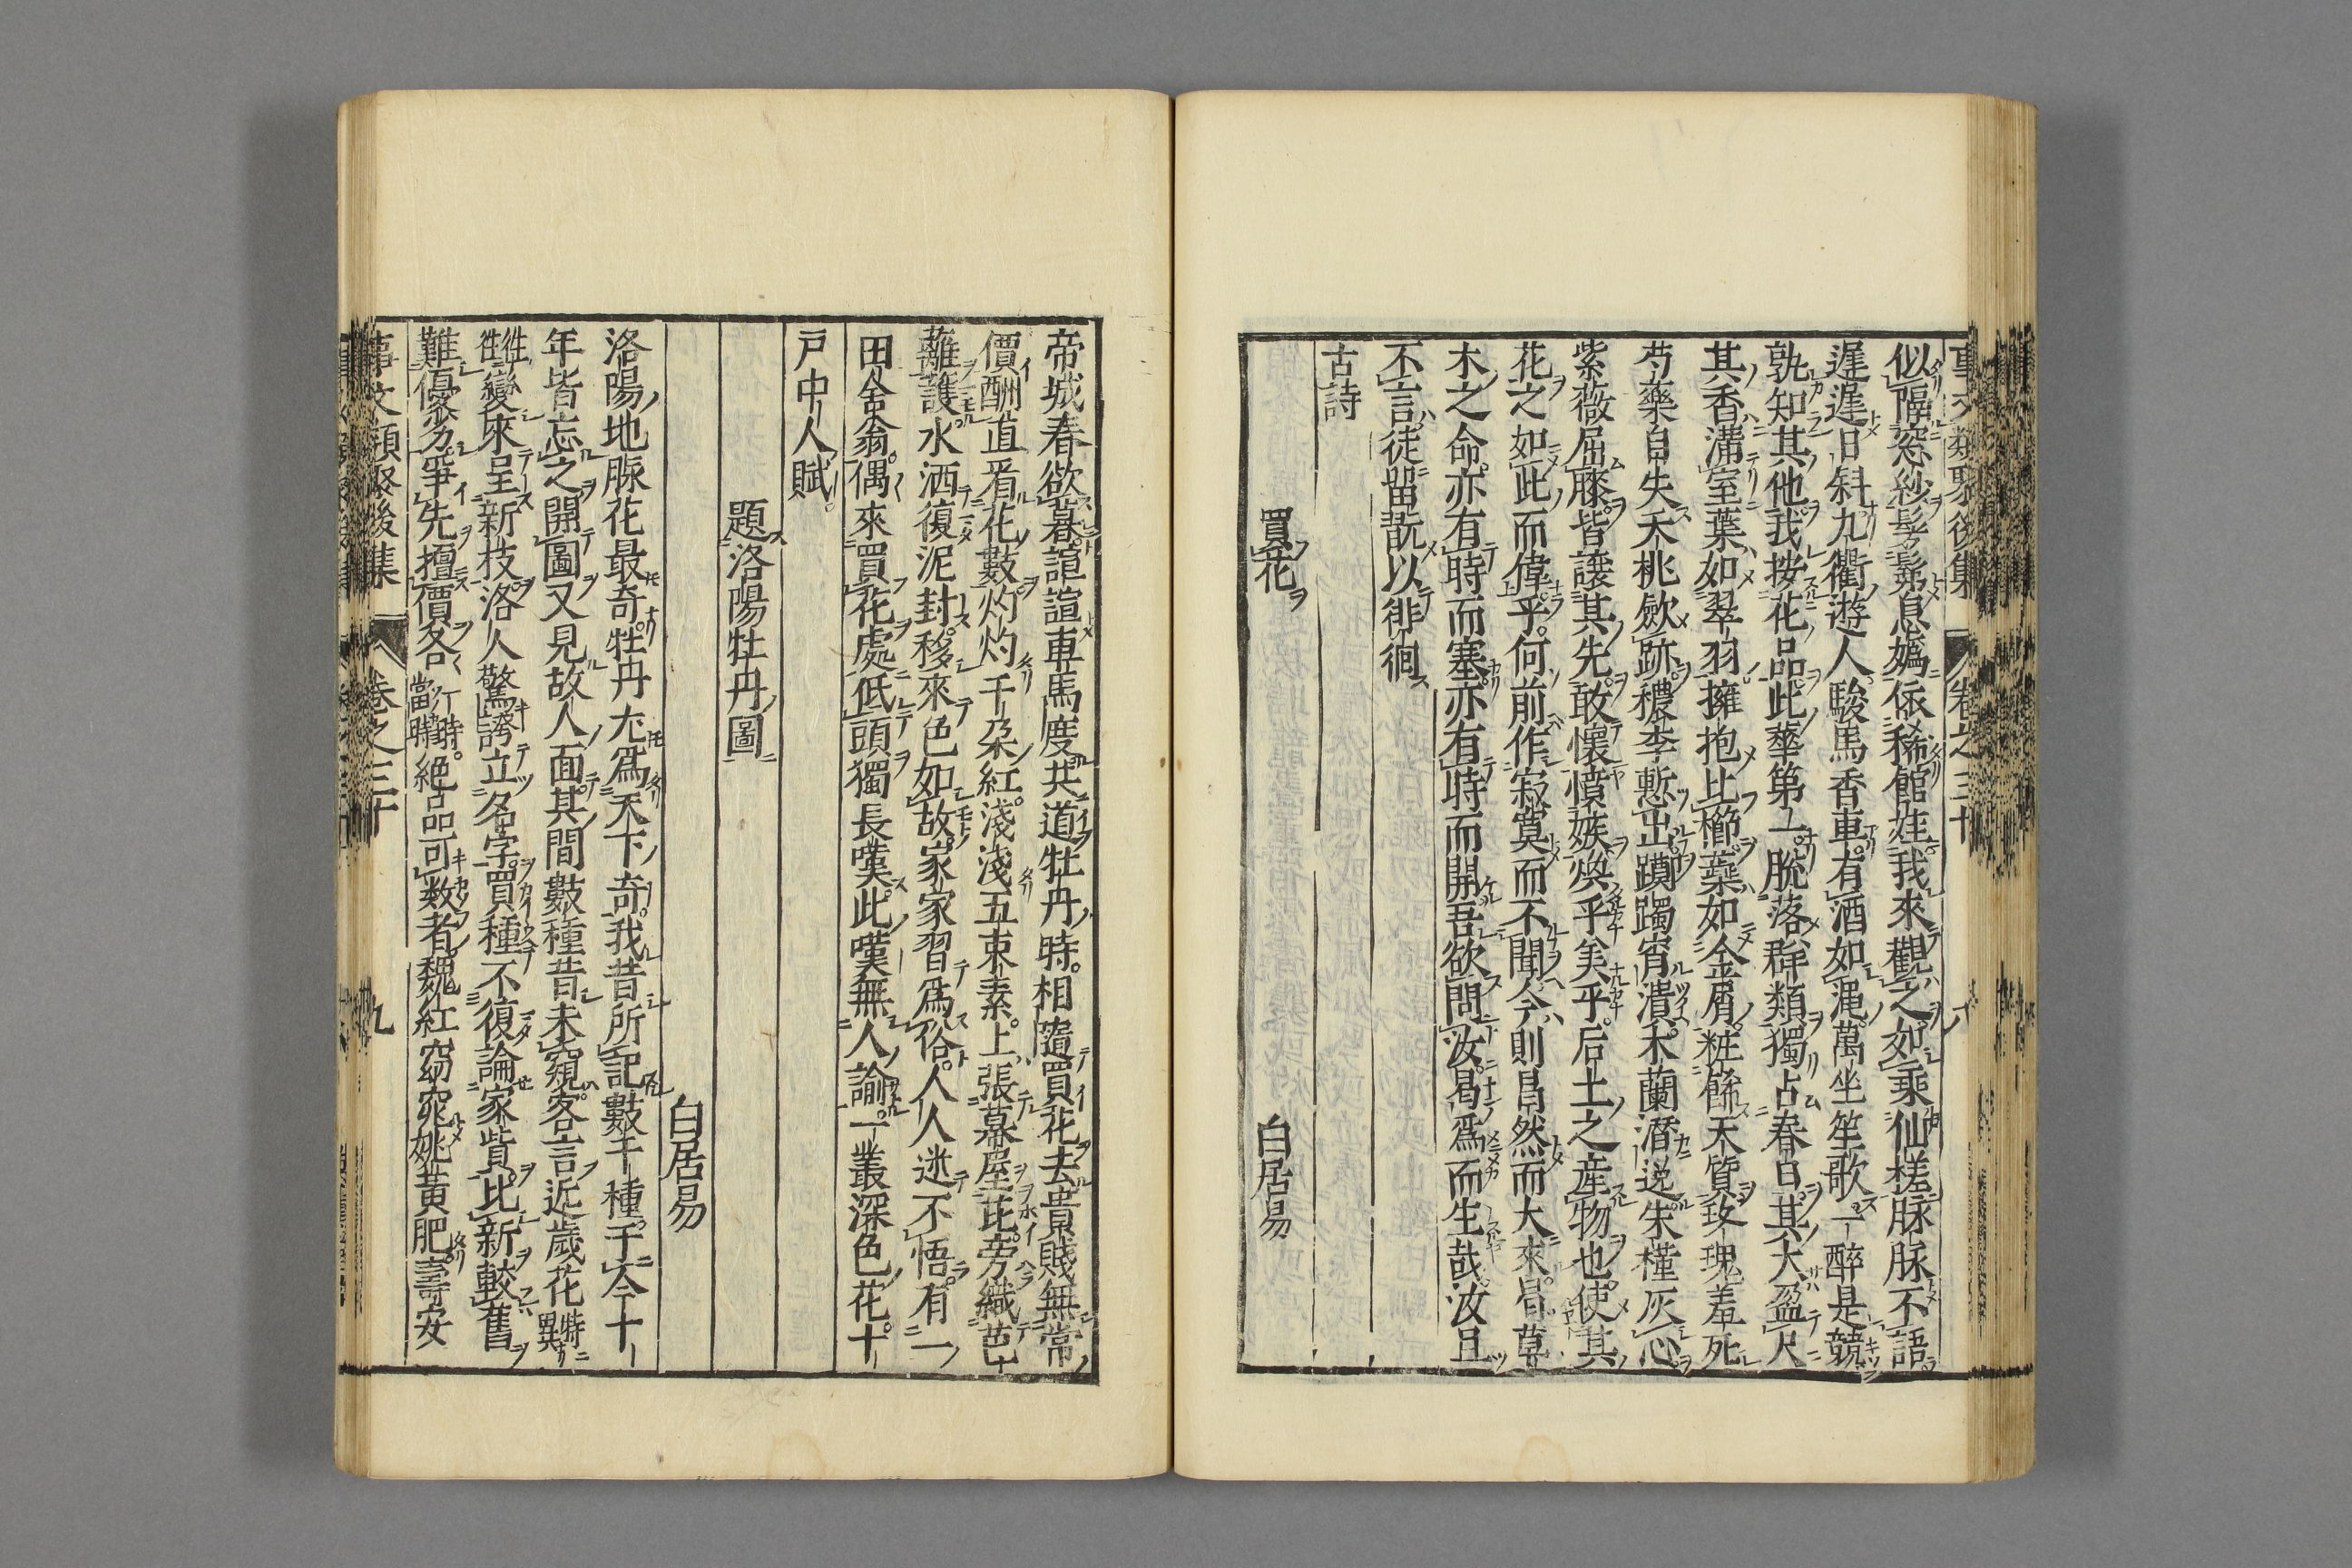 事文類聚後集 卷之三十 八
似隔窓紗髣髴息嬀依稀館娃我來觀之如乘仙槎脉脉不語
遲遲日斜九衢遊人駿馬香車有酒如澠萬坐笙歌一醉是競
孰知其他我按花品此華第一脫落群類獨占春日其大盈尺
其香滿室葉如翠羽擁抱比櫛蘂如金屑粧餙天質玫瑰羞死
芍藥自失夭桃斂跡穠李慙出躑躅宵潰木蘭潜逃朱槿灰心
紫薇屈膝皆讓其先敢懷憤嫉煥乎美乎后土之産物也使其
花之如此而偉乎何前作寂寞而不聞今則昌然而大來曷草
木之命亦有時而塞亦有時而開吾欲問汝曷爲而生哉汝且
不言徒留翫以徘徊
古詩
買花 白居易
帝城春欲暮諠諠車馬度共道牡丹時相隨買花去貴賤無常
價酬直看花數灼灼千朶紅淺淺五束素上張幕屋芘旁織芭
蘺護水洒復泥封移來色如故家家習爲俗人人迷不悟有一
田舍翁偶來買花處低頭獨長嘆此嘆無人諭一叢深色花十
戸中人賦
題洛陽牡丹圖
白居易
洛陽地脉花最奇牡丹尤爲天下奇我昔所記數十種于今十
年皆忘之開圖又見故人面其間數種昔未窺客言近歲花特異
往往變來呈新枝洛人驚誇立名字買種不復論家貲比新較舊
難優劣爭先擅價各一時當時絶品可数者魏紅窈窕姚黃肥壽安
事文類聚後集 卷之三十 九